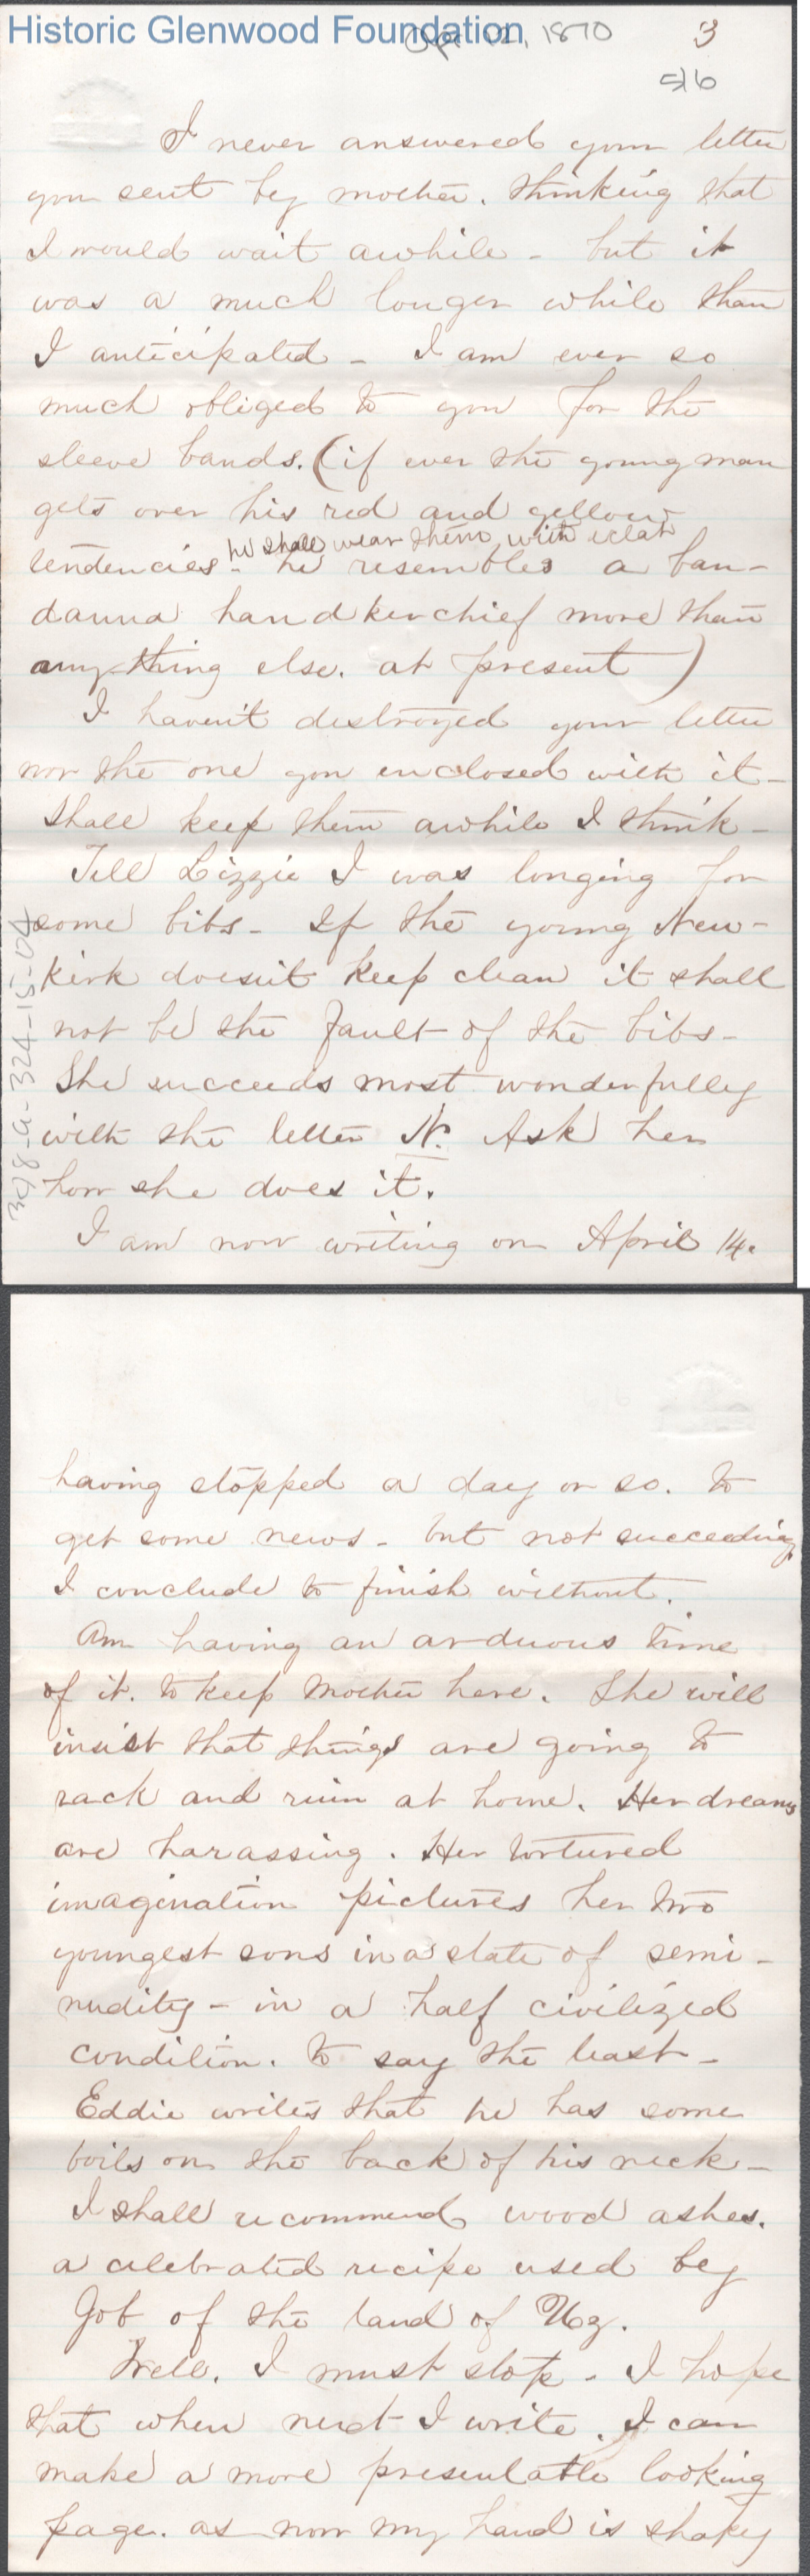 Historic Glenwood Foundation
Apr 12, 1870
3
516
I never answered your letter
you sent by mother. thinking that
I would wait awhile - but it
was a much longer while than
I anticipated - I am ever so
much obliged to you for the
sleeve bands. (if ever the young man
gets over his red and yellow
he shall wear them with eclat
tendencies - he resembles a ban-
danna handkerchief more than
anything else. at present)
I haven't destroyed your letter
nor the one you enclosed with it -
Shall keep them awhile I think -
Tell Lizzie I was longing for
some bibs - If the young New-
kirk doesn't keep clean it shall
not be the fault of the bibs -
She succeeds most wonderfully
with the letter N. Ask her
how she does it.
I am now writing on April 14.
398-a-324-15-04
having stopped a day or so. to
get some news - but not succeeding
I conclude to finish without.
Am having an arduous time
of it. to keep Mother here. She will
insist that things are going to
rack and ruin at home. Her dreams
are harassing. Her tortured
imagination pictures her two
youngest sons in a state of semi-
nudity - in a half civilized
condition. to say the least -
Eddie writes that he has some
boils on the back of his neck -
I shall recommend wood ashes.
a celebrated recipe used by
Job of the land of Uz.
Well. I must stop - I hope
that when next I write. I can
make a more presentable looking
page. as now my hand is shaky